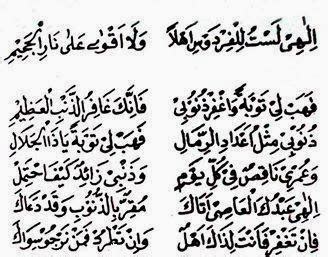 اِلٰهِيْ لَسْتُ لِلْفِرْدَوْسِ اَهْلاً وَلَا اَقْوٰى عَلٰى نَارِ الْجَحِيْمِ
فَهَبْ لِيْ تَوْبَةً وَاغْفِرْ ذُنُوْبِيْ فَاِنَّكَ غَافِرُ الذَّنْبِ الْعَظِيْمِ
ذُنُوْبِيْ مِثْلُ اَعْدَادِ الرِّمَالِ فَهَبْ لِيْ تَوْبَةً يَاذَا الْجَلَالِ
وَعُمْرِيْ نَاقِصٌ فِيْ كُلِّ يَوْمٍ وَذَنْبِيْ زَائِدٌ كَيْفَ احْتِمَلِ
اِلٰهِيْ عَبْدُكَ الْعَاصِيْ اَتَاكَ مُقِرًّا بِالذُّنُوْبِ وَقَدْ دَعَاكَ
فَاِنْ تَغْفِرْ فَاَنْتَ لِذَاكَ اَهْلٌ وَاِنْ تَطْرُدْ فَمَنْ نَرْجُوْ سِوَاكَ